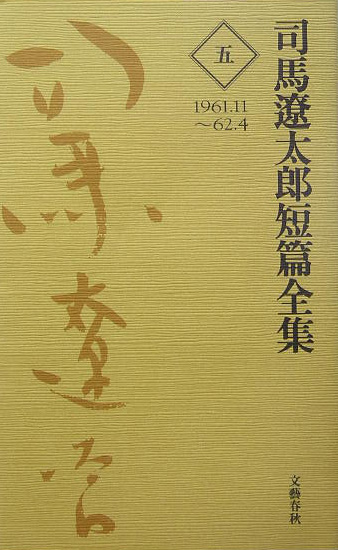 司馬遼太郎短篇全集
五
1961.11
～62.4
司馬遼太郎
文藝春秋